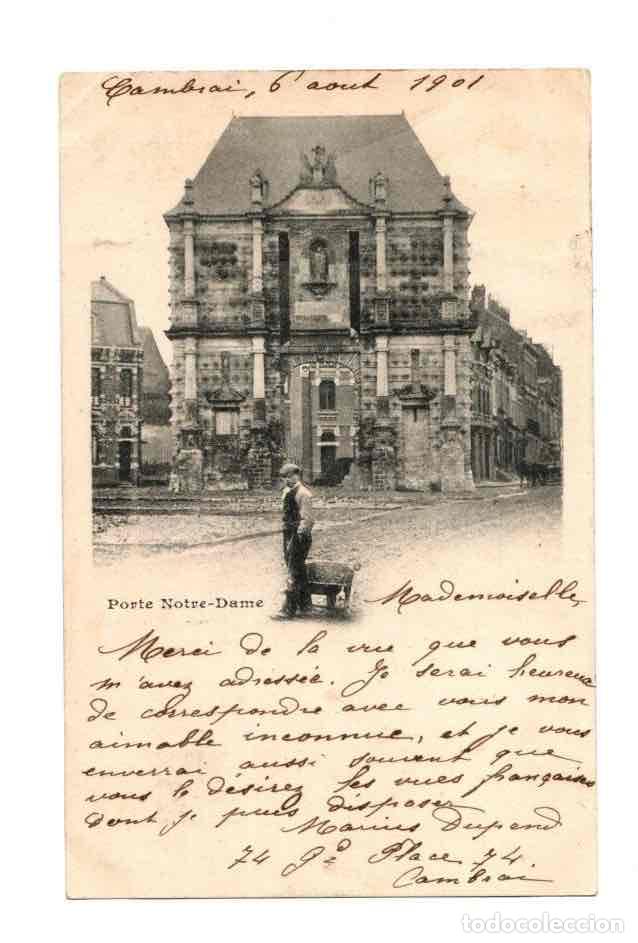 Cambrai, 6 aout 1901
Porte Notre-Dame
Mademoiselle,
Merci de la vue que vous
m'avez adressée. Je serai heureux
de correspondre avec vous mon
aimable inconnue, et je vous
enverrai aussi souvent que
vous le désirez les vues françaises
dont je puis disposer
Marius Dupend
74 Gde Place 74.
Cambrai
todocoleccion